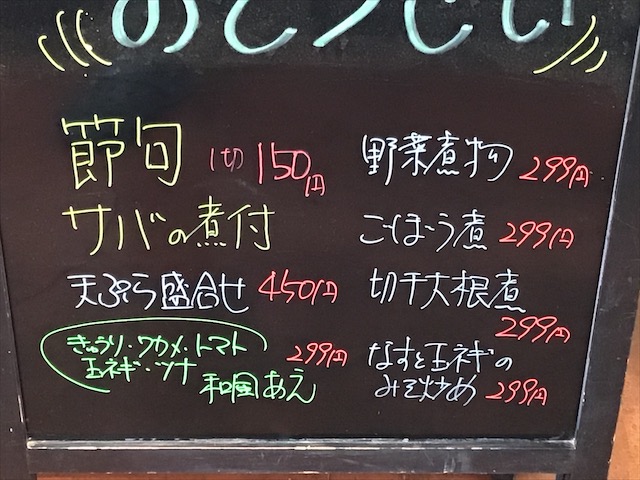 節句 1切 150円
サバの煮付
天ぷら盛合せ 450円
きゅうり・ワカメ・トマト
玉ネギ・ツナ 和風あえ 299円
野菜煮物 299円
ごぼう煮 299円
切干大根煮
299円
なすと玉ネギの
みそ炒め 299円